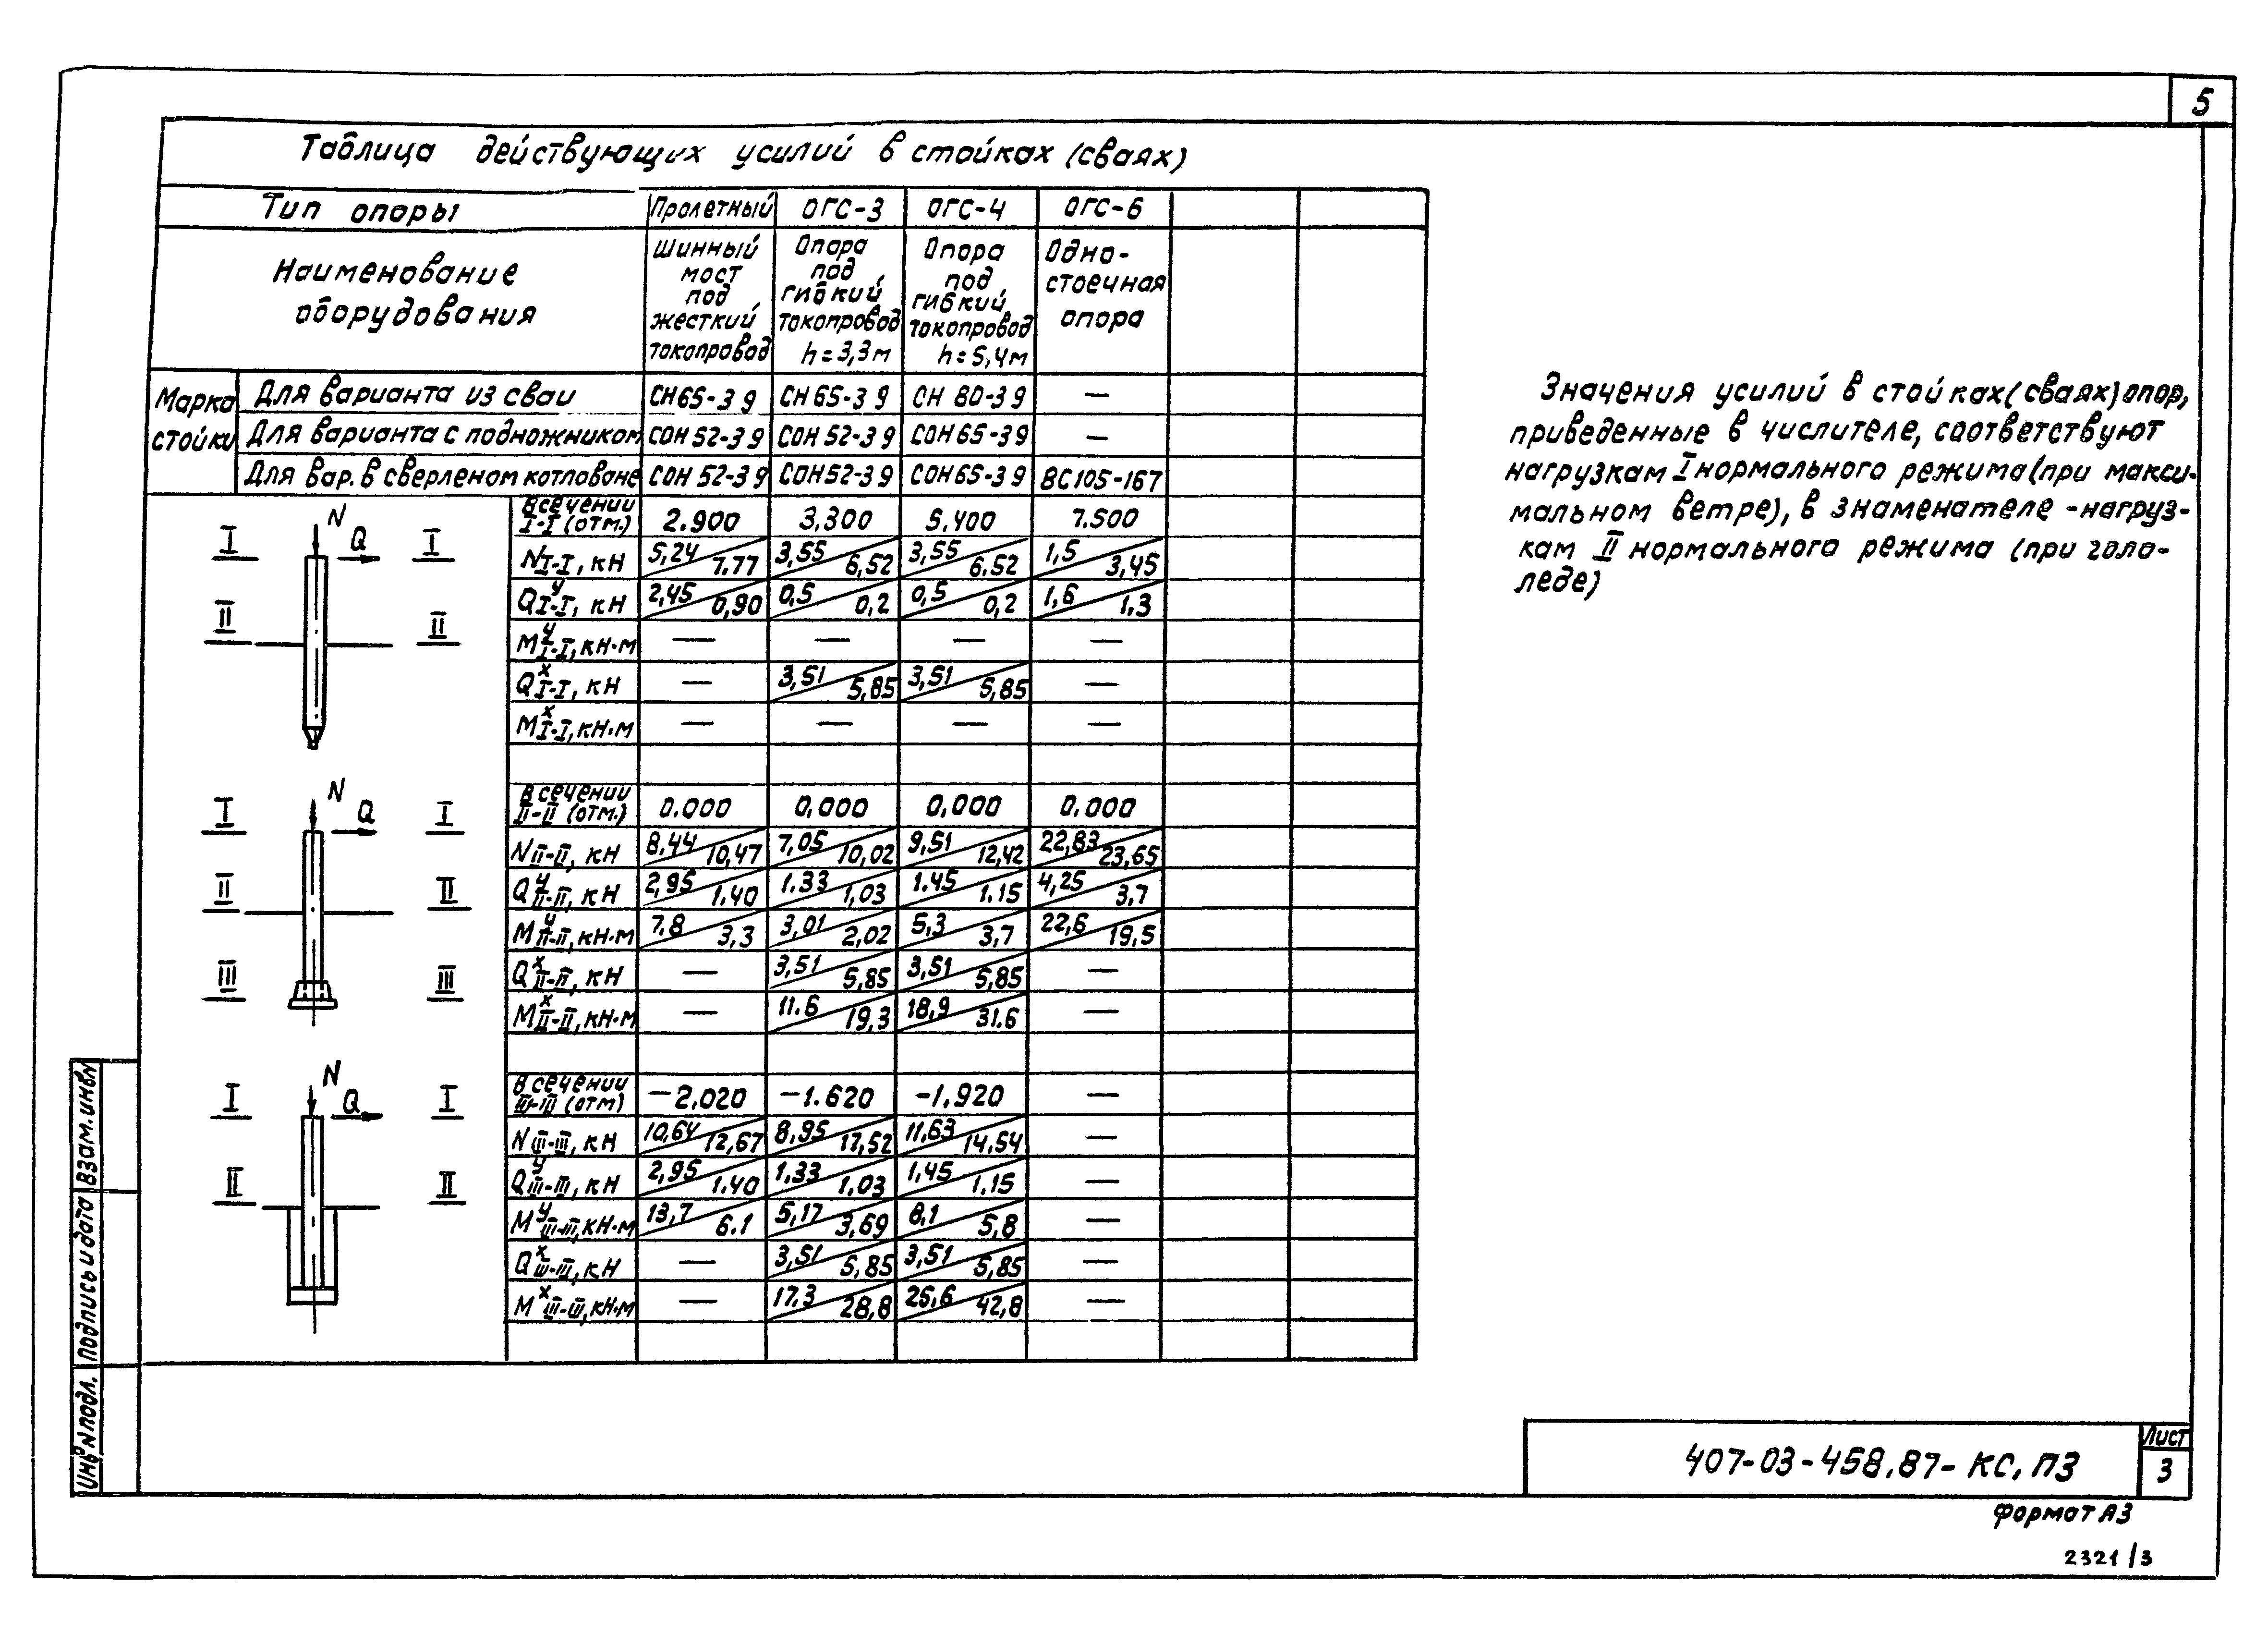 5
Таблица действующих усилий в стойках (сваях)
Тип опоры Пролетный ОГС-3 ОГС-4 ОГС-6
Наименование оборудования
Шинный мост под жесткий токопровод
Опора под гибкий токопровод h=3,3м
Опора под гибкий токопровод h=5,4м
Одно-стоечная опора
Марка стойки
Для варианта из сваи СН65-39 СН65-39 СН 80-39 —
Для варианта с подножником СОН 52-39 СОН 52-39 СОН 65-39 —
Для вар. в сверленом котловане СОН 52-39 СОН 52-39 СОН 65-39 ВС105-167
В сечении I-I (отм.) 2.900 3,300 5,400 7.500
N I-I, кН 5,24/7.77 3,55/6,52 3,55/6.52 1,5/3,45
Q У I-I, кН 2,45/0,90 0,5/0,2 0,5/0,2 1,6/1,3
М У I-I, кН·м — — — —
Q Х I-I, кН — 3,51/5,85 3,51/5,85 —
М Х I-I, кН·м — — — —
В сечении II-II (отм.) 0.000 0,000 0,000 0.000
N II-II, кН 8,44/10,47 7,05/10,02 9,51/12,42 22,83/23,65
Q У II-II, кН 2,95/1.40 1.33/1,03 1.45/1.15 4,25/3,7
М У II-II, кН·м 7.8/3,3 3,01/2,02 5,3/3,7 22,6/19,5
Q Х II-II, кН — 3,51/5,85 3,51/5,85 —
М Х II-II, кН·м — 11.6/19,3 18,9/31.6 —
В сечении III-III (отм) -2.020 -1.620 -1,920 —
N III-III, кН 10,64/12,67 8,95/17,52 11,63/14,54 —
Q У III-III, кН 2,95/1.40 1,33/1.03 1,45/1.15 —
М У III-III, кН·м 13,7/6.1 5,17/3,69 8,1/5,8 —
Q Х III-III, кН — 3,51/5,85 3,51/5,85 —
М Х III-III, кН·м — 17,3/28,8 25,6/42,8 —
N
I Q I
II II
N
I Q I
II II
III III
N
I Q I
II II
Значения усилий в стойках (сваях) опор,
приведенные в числителе, соответствуют
нагрузкам I нормального режима (при макси-
мальном ветре), в знаменателе - нагруз-
кам II нормального режима (при голо-
леде)
Инв N подл. Подпись и дата Взам. инв N
407-03-458.87- КС, ПЗ
Лист
3
Формат А3
2321/3